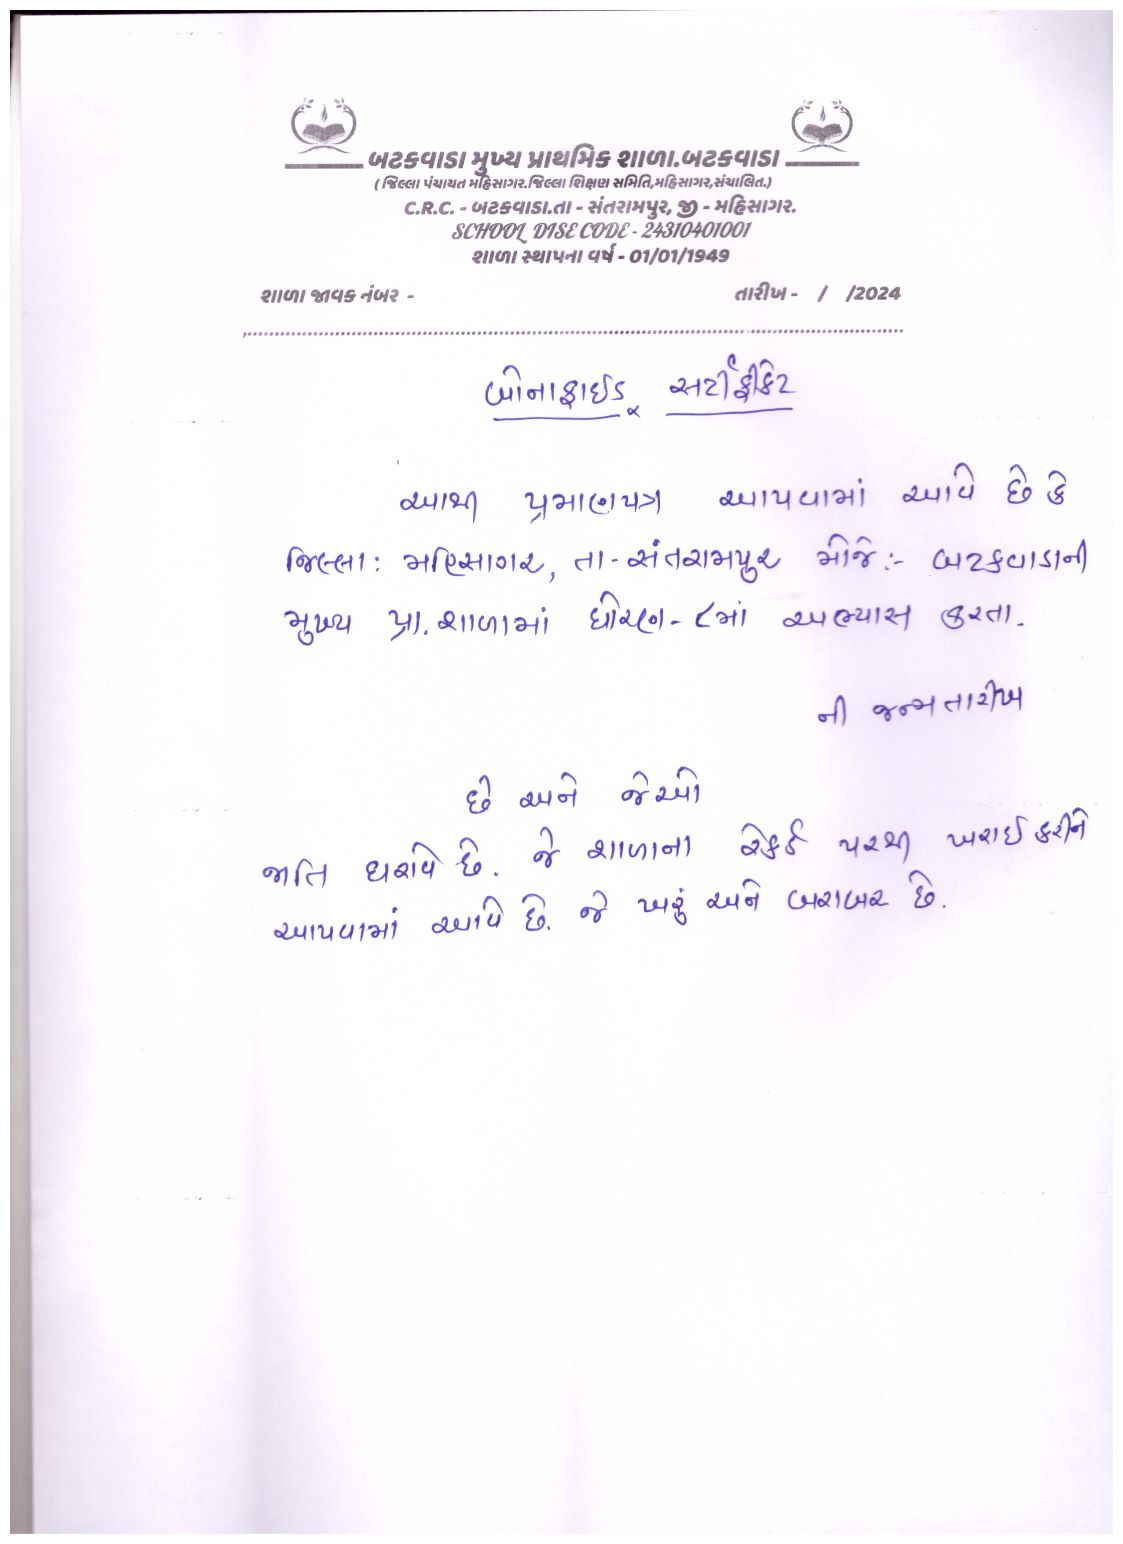 બટકવાડા મુખ્ય પ્રાથમિક શાળા.બટકવાડા
( જિલ્લા પંચાયત મહિસાગર.જિલ્લા શિક્ષણ સમિતિ,મહિસાગર,સંચાલિત.)
C.R.C. - બટકવાડા.તા - સંતરામપુર, જી - મહિસાગર.
SCHOOL DISE CODE - 24310401001
શાળા સ્થાપના વર્ષ - 01/01/1949
શાળા જાવક નંબર - તારીખ - / /2024
બોનાફાઈડ સર્ટીફીકેટ
આથી પ્રમાણપત્ર આપવામાં આવે છે કે
જિલ્લા: મહિસાગર, તા-સંતરામપુર મોજે:- બટકવાડાની
મુખ્ય પ્રા. શાળામાં ધોરણ-૮માં અભ્યાસ કરતા.
ની જન્મતારીખ
છે અને જેઓ
જાતિ ધરાવે છે. જે શાળાના રેકર્ડ પરથી ખરાઈ કરીને
આપવામાં આવે છે. જે ખરું અને બરાબર છે.